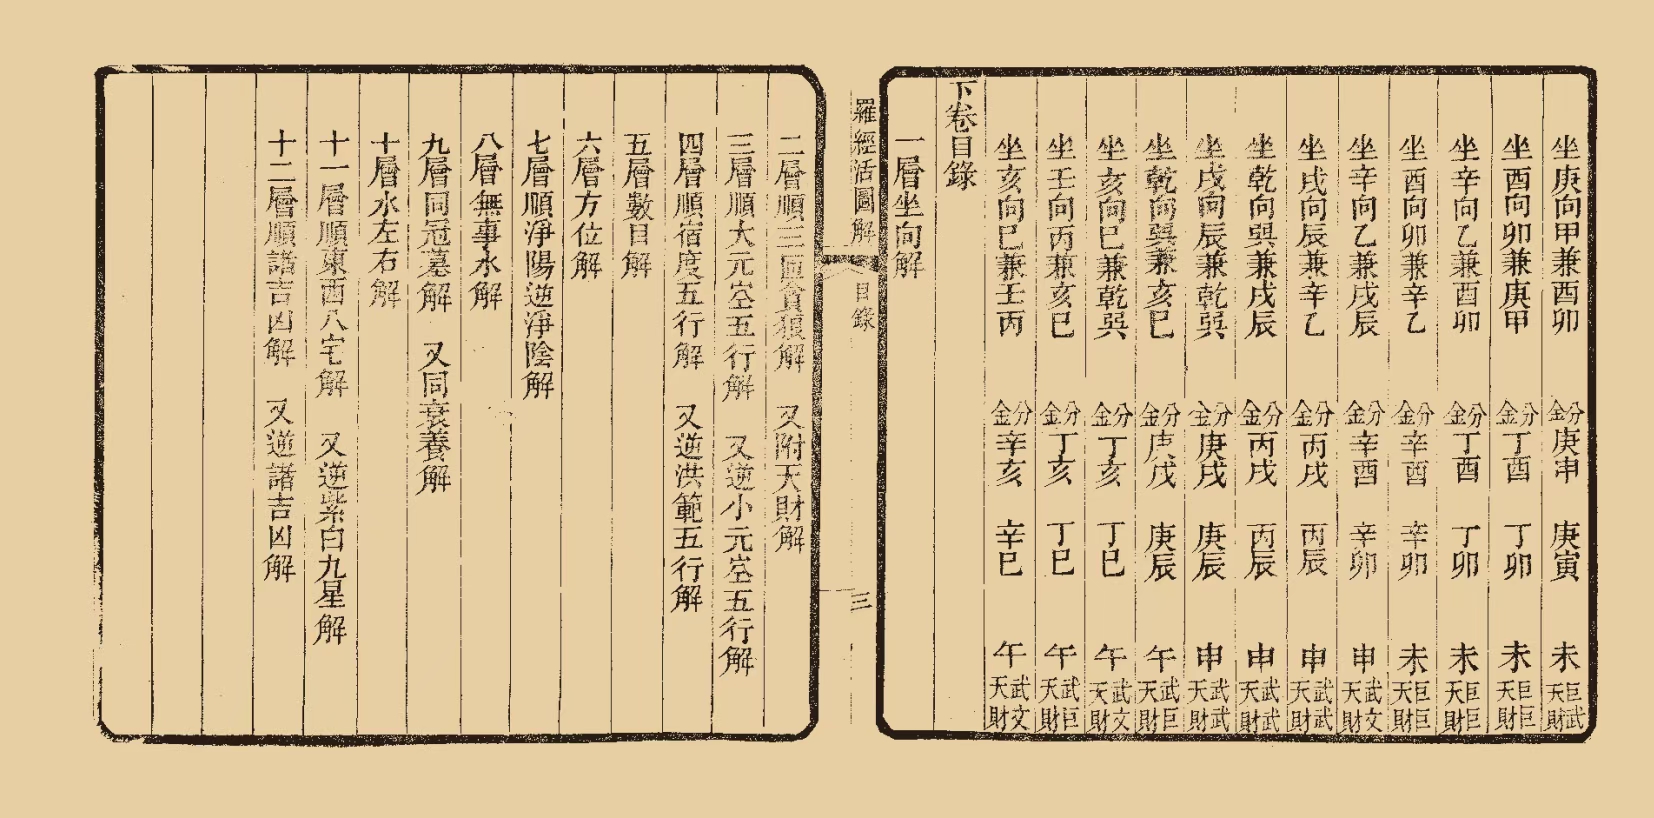 坐庚向甲兼酉卯 分金庚申 庚寅 未 巨武天財
坐酉向卯兼庚甲 分金丁酉 丁卯 未 巨巨天財
坐辛向乙兼酉卯 分金丁酉 丁卯 未 巨巨天財
坐酉向卯兼辛乙 分金辛酉 辛卯 未 巨巨天財
坐辛向乙兼戌辰 分金辛酉 辛卯 申 武文天財
坐戌向辰兼辛乙 分金丙戌 丙辰 申 武武天財
坐乾向巽兼戌辰 分金丙戌 丙辰 申 武武天財
坐戌向辰兼乾巽 分金庚戌 庚辰 申 武武天財
坐乾向巽兼亥巳 分金庚戌 庚辰 午 武巨天財
坐亥向巳兼乾巽 分金丁亥 丁巳 午 武文天財
坐壬向丙兼亥巳 分金丁亥 丁巳 午 武巨天財
坐亥向巳兼壬丙 分金辛亥 辛巳 午 武文天財
下卷目錄
一層坐向解
羅經活圖解 目錄 三
二層順三 貪狼解 又附天財解
三層順大元空五行解 又逆小元空五行解
四層順宿度五行解 又逆洪範五行解
五層數目解
六層方位解
七層順淨陽逆淨陰解
八層無事水解
九層同冠墓解 又同衰養解
十層水左右解
十一層順東西八宅解 又逆紫白九星解
十二層順諸吉凶解 又逆諸吉凶解